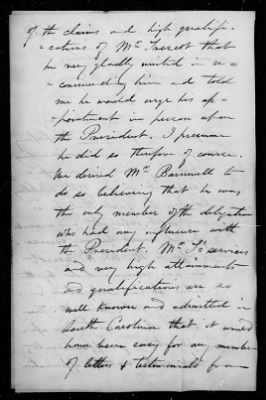 of the claims and high qualifi-
-cations of Mr Trescot that
he very gladly united in re-
-commending him and told
me he would urge his ap-
-pointment in person upon
the President. I presume
he did so therefore of course.
We desired Mr Barnwell to
do so believing that he was
the only member of the delegation
who had any influence with
the President. Mr T's services
and very high attainments
and qualifications are so
well known and admitted in
South Carolina that it would
have been easy for any number
of letters & testimonials from